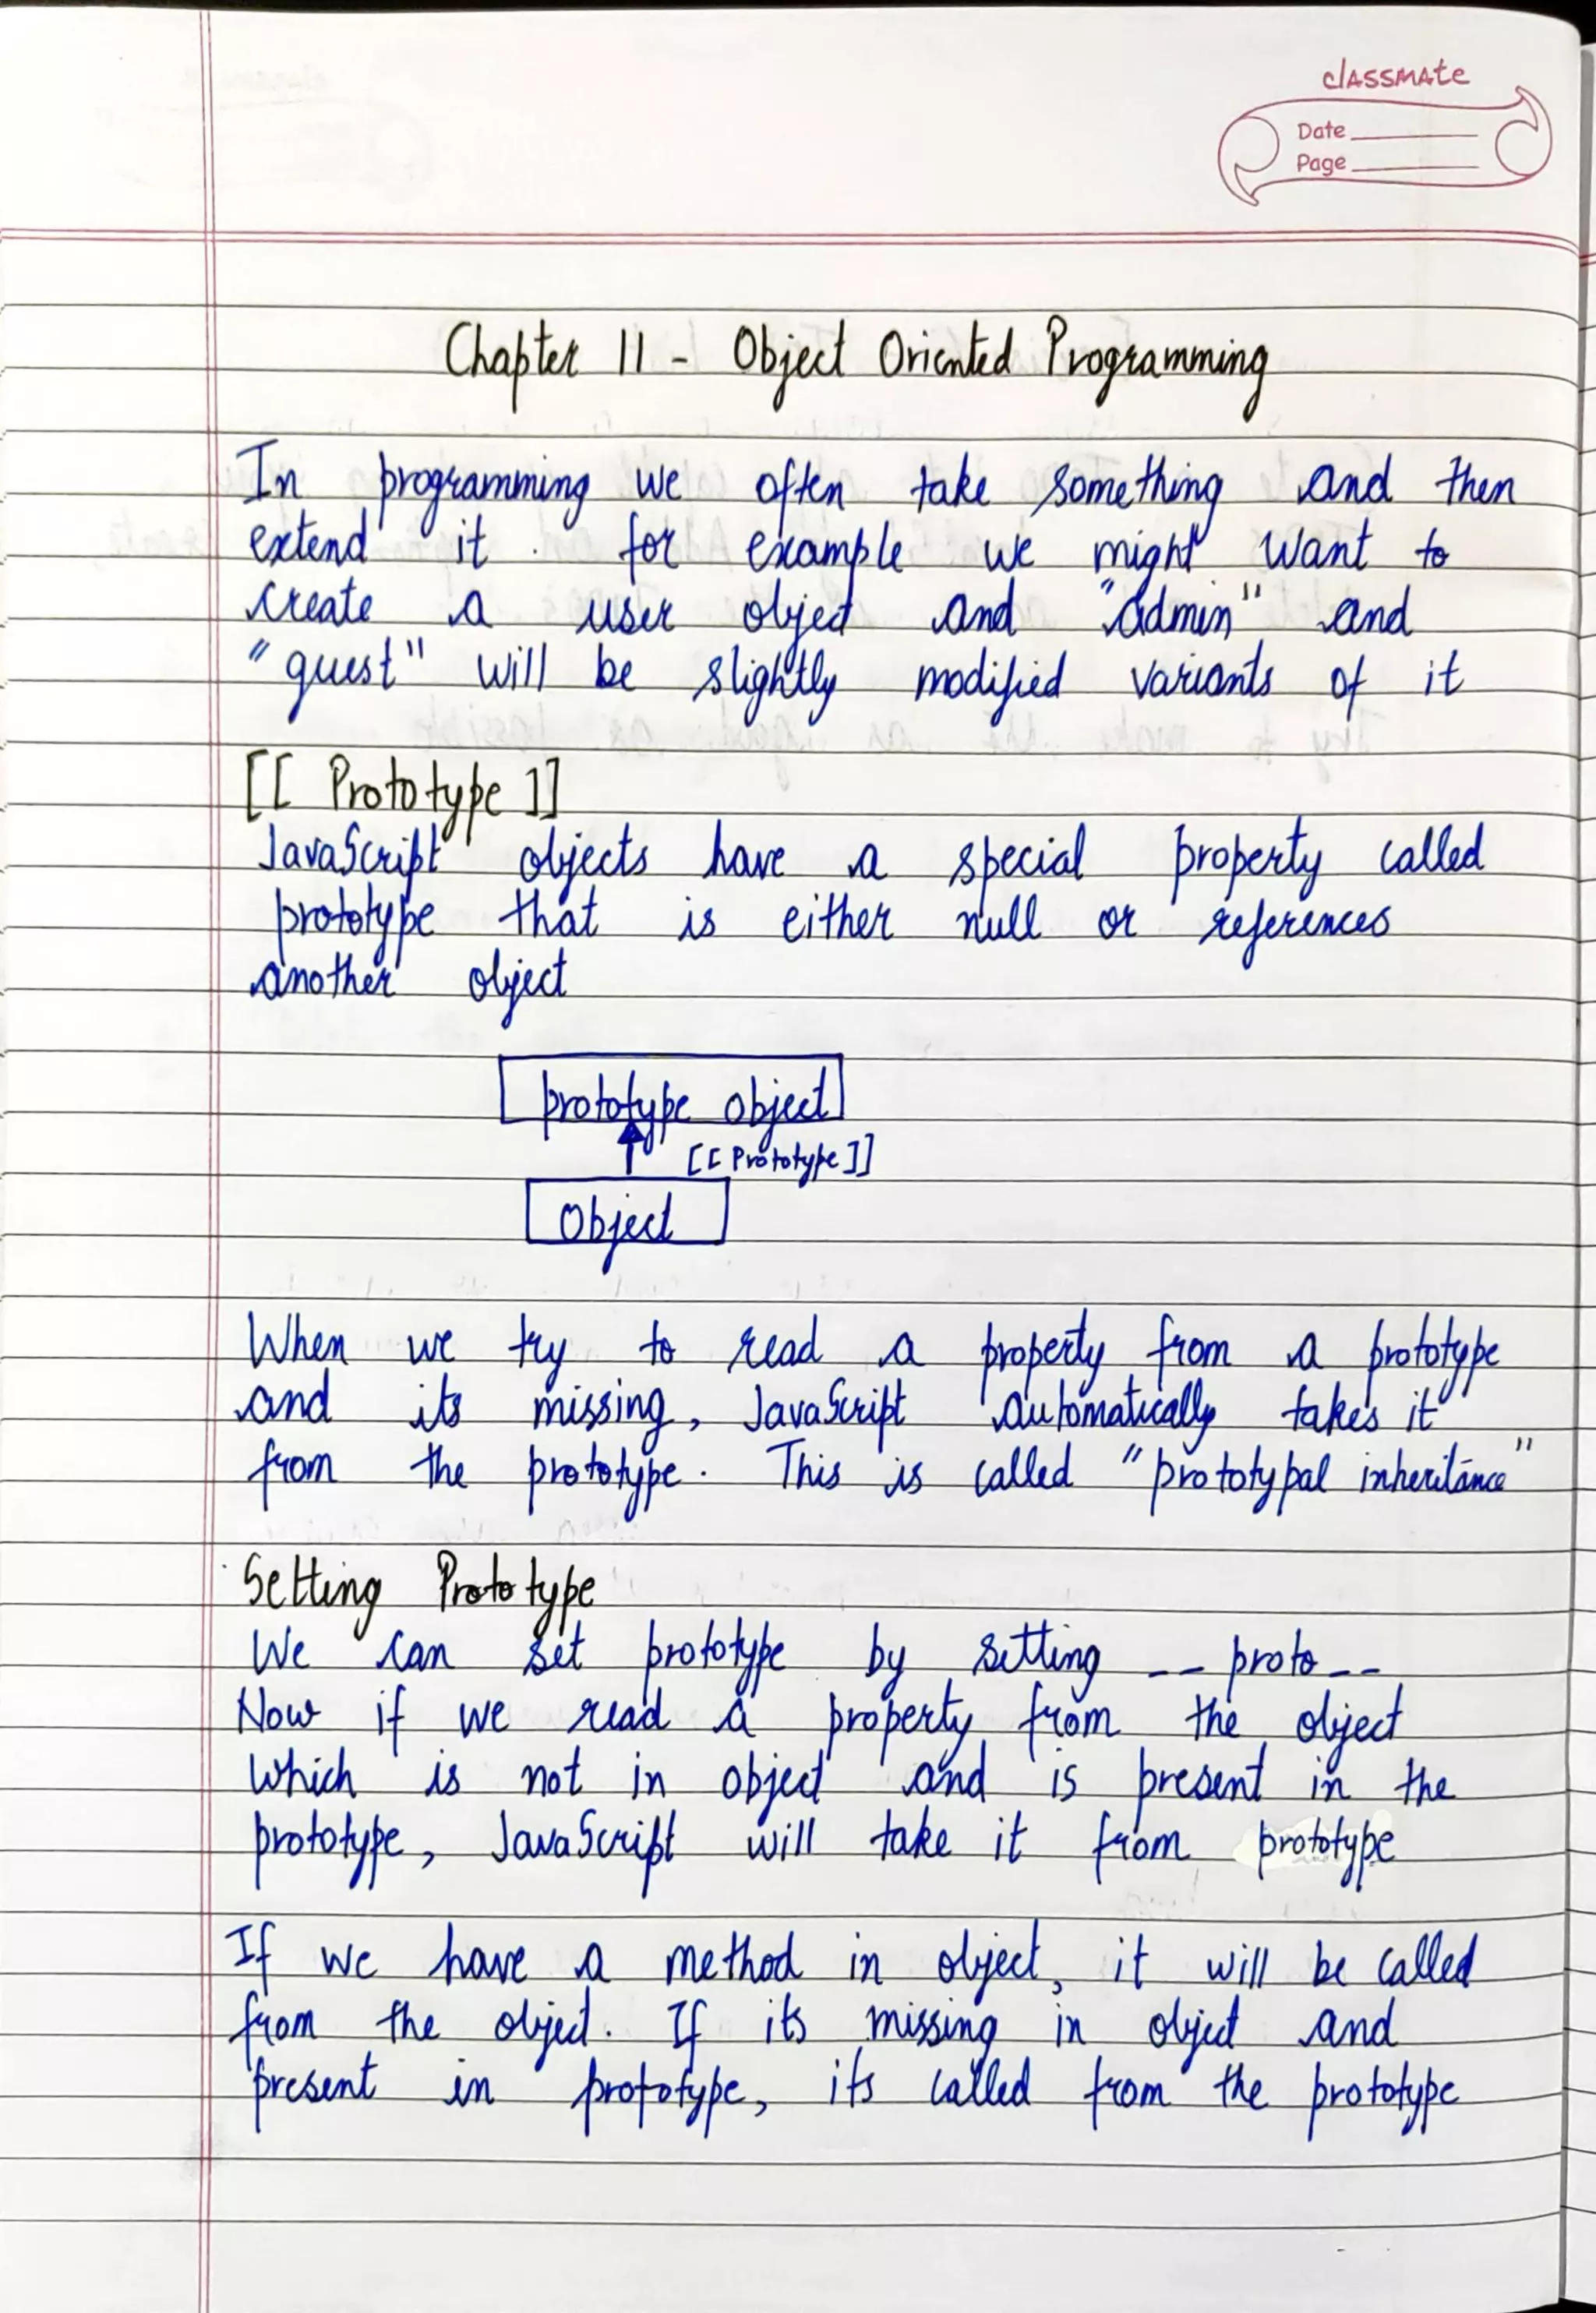 classmate
Date
Page
Chapter 11 - Object Oriented Programming
In programming we often take something and then
extend it. for example we might want to
create a user object and "admin" and
"guest" will be slightly modified variants of it
[[ Prototype ]]
JavaScript objects have a special property called
prototype that is either null or references
another object
prototype object
[[Prototype]]
Object
When we try to read a property from a prototype
and its missing, JavaScript automatically takes it
from the prototype. This is called "prototypal inheritance"
Setting Prototype
We can set prototype by setting __proto__
Now if we read a property from the object
which is not in object and is present in the
prototype, JavaScript will take it from prototype
If we have a method in object, it will be called
from the object. If its missing in object and
present in prototype, its called from the prototype